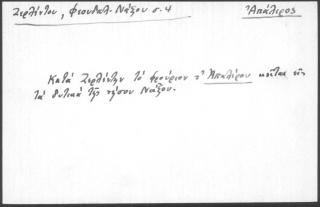 Ζερλέντου, Φεουδαλ. Νάξου σ. 4
Ἀπάλιρος
Κατὰ Ζερλέντην τὸ φρούριον τ' Ἀπαλίρου κεῖται εἰς
τὰ δυτικὰ τῆς νήσου Νάξου.